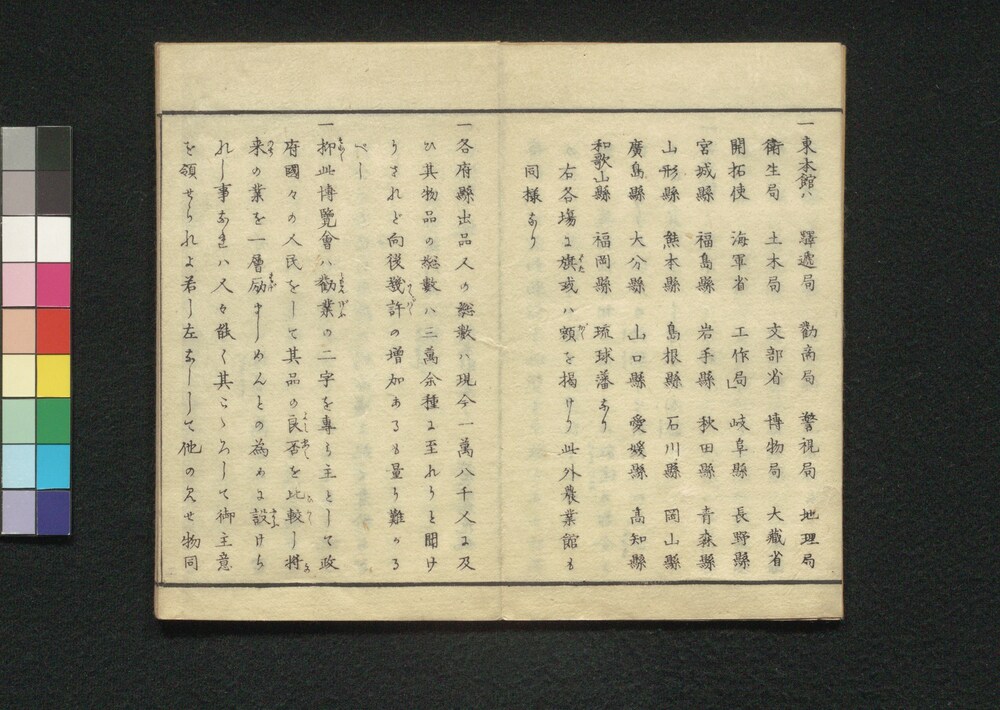 一東本館ハ　驛遞局　勸商局　警視局　地理局
衛生局　土木局　文部省　博物局　大藏省
開拓使　海軍省　工作局」岐阜縣　長野縣
宮城縣　福島縣　岩手縣　秋田縣　青森縣
山形縣　熊本縣　島根縣　石川縣　岡山縣
廣島縣　大分縣　山口縣　愛媛縣　高知縣
和歌山縣　福岡縣　琉球藩なり
右各塲に旗或ハ額を揭けり此外農業館も
同様なり
一各府縣出品人の総數ハ現今一萬八千人に及
ひ其物品の総數ハ三萬余種に至れりと聞け
りされど向後幾許の增加あるも量り難かる
べし
一抑此博覽會ハ勸業の二字を專ら主として政
府國々の人民をして其品の良否を比較し將
来の業を一層励ましめんとの為めに設けら
れし事なれハ人々能く其こゝろして御主意
を領せられよ若し左なくして他の見せ物同